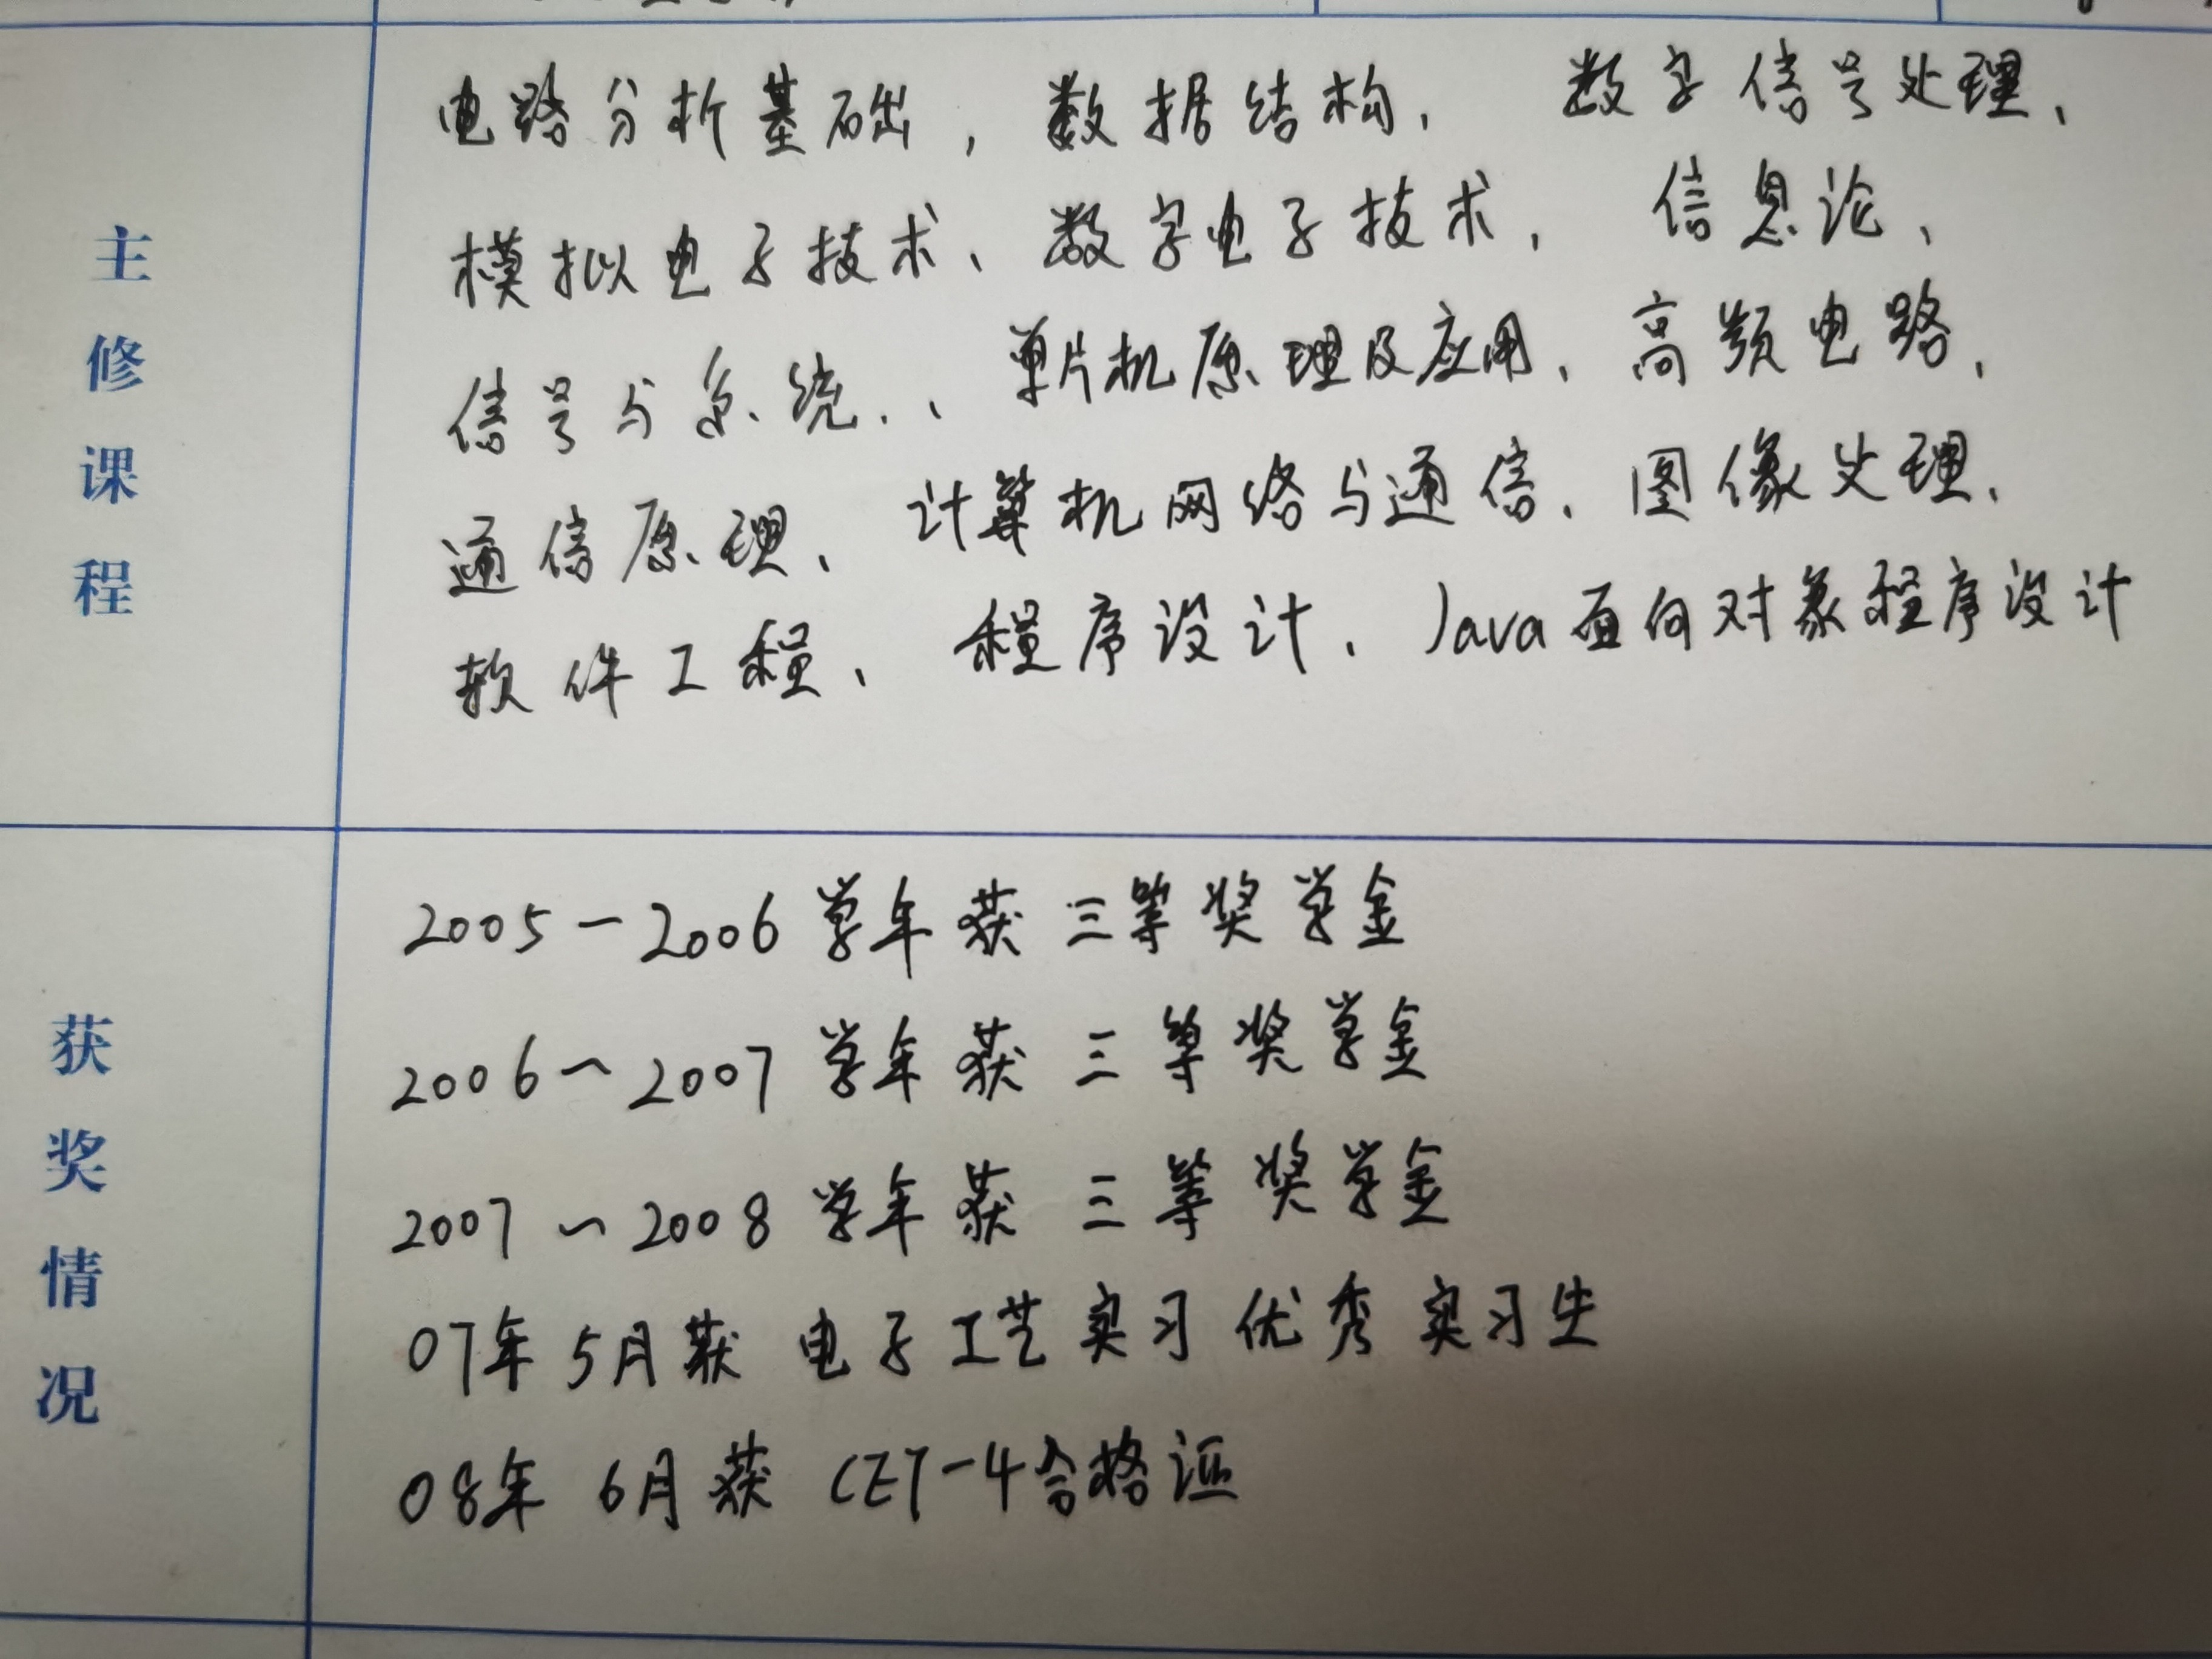 主修课程
电路分析基础，数据结构，数字信号处理、
模拟电子技术、数字电子技术，信息论、
信号与系统、、单片机原理及应用、高频电路，
通信原理、计算机网络与通信、图像处理、
软件工程、程序设计、Java面向对象程序设计
获奖情况
2005-2006学年获三等奖学金
2006~2007学年获三等奖学金
2007~2008学年获三等奖学金
07年5月获电子工艺实习优秀实习生
08年6月获CET-4合格证